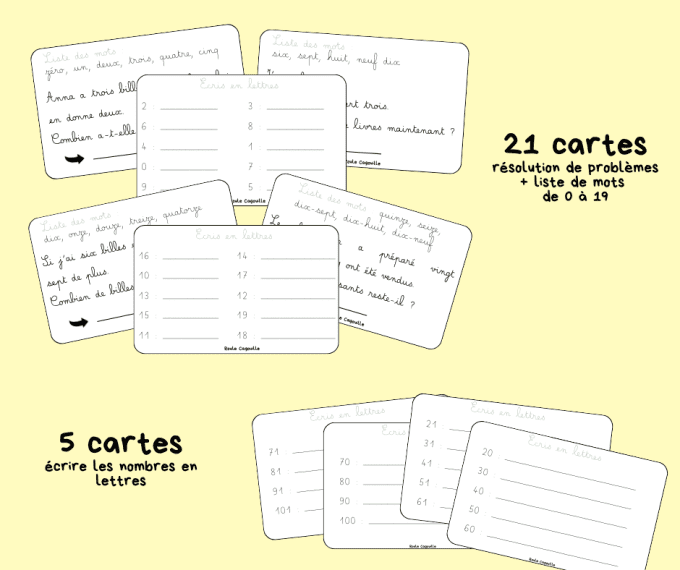 Liste des mots
zéro, un, deux, trois, quatre, cinq
Anna a trois bill
en donne deux.
Combien a-t-elle
Liste des mots
six, sept, huit, neuf dix
ert trois.
livres maintenant ?
Roule Cagoulle
Écris en lettres
2 : 3 :
6 : 8 :
4 : 1 :
0 : 7 :
9 5 :
Roule Cagoulle
21 cartes
résolution de problèmes
+ liste de mots
de 0 à 19
Liste des mots
dix, onze, douze, treize, quatorze
Si j'ai six billes
sept de plus.
Combien de billes
Liste des mots : quinze, seize,
dix-sept, dix-huit, dix-neuf
a préparé vingt
ont été vendus.
sants reste-il ?
Écris en lettres
16 : 14 :
10 : 17 :
13 : 12 :
15 : 19 :
11 : 18 :
Roule Cagoulle
5 cartes
écrire les nombres en
lettres
Écris en lettres
71 :
81 :
91 :
101 :
Écris
70 :
80 :
90 :
100 :
Roule Cagoulle
Écris en lettres
21 :
31 :
41 :
51 :
61 :
Écris en lettres
20
30
40
50
60
Roule Cagoulle